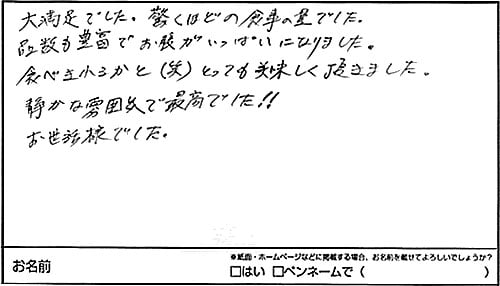 大満足でした。驚くほどの食事の量でした。
品数も豊富でお腹がいっぱいになりました。
食べきれるかと(笑)とっても美味しく頂きました。
静かな雰囲気で最高でした!!
お世話様でした。
お名前
※紙面・ホームページなどに掲載する場合、お名前を載せてよろしいでしょうか?
□はい □ペンネームで( )